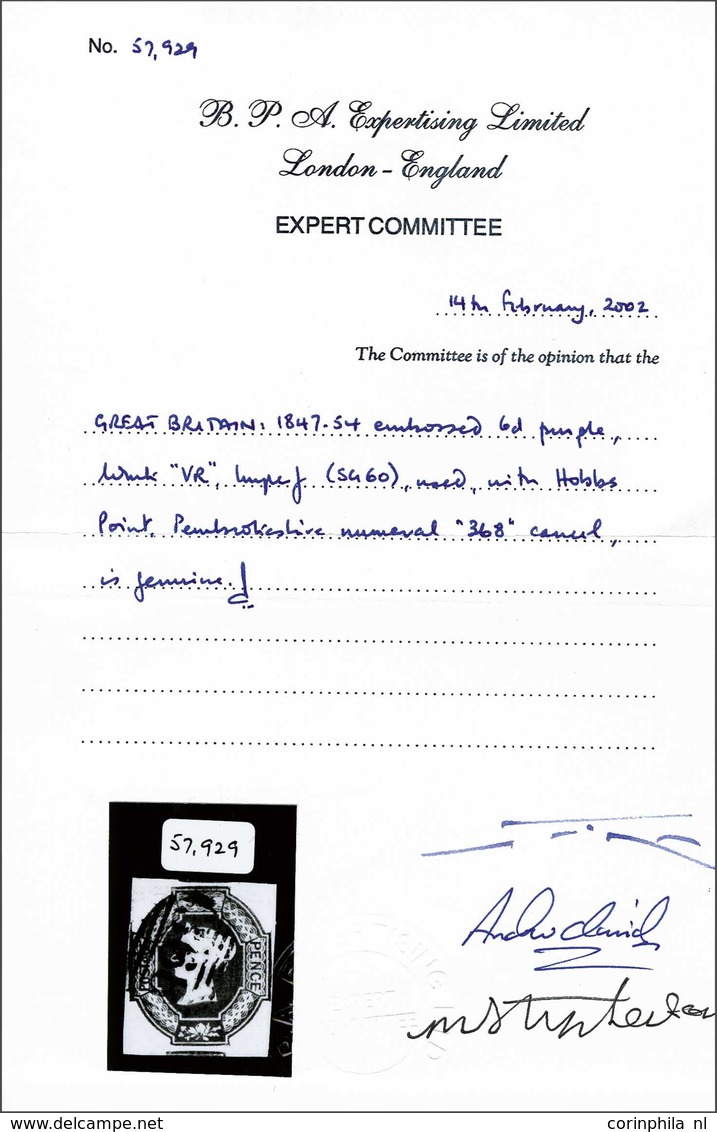 No. 57,929
B. P. A. Expertising Limited
London - England
EXPERT COMMITTEE
14th February, 2002
The Committee is of the opinion that the
GREAT BRITAIN: 1847-54 embossed 6d purple,
Wmk "VR", Imperf (SG60), used, with Hobbs
Point, Pembrokeshire numeral "368" cancel,
is genuine.
57,929
PENCE
www.delcampe.net
corinphila nl